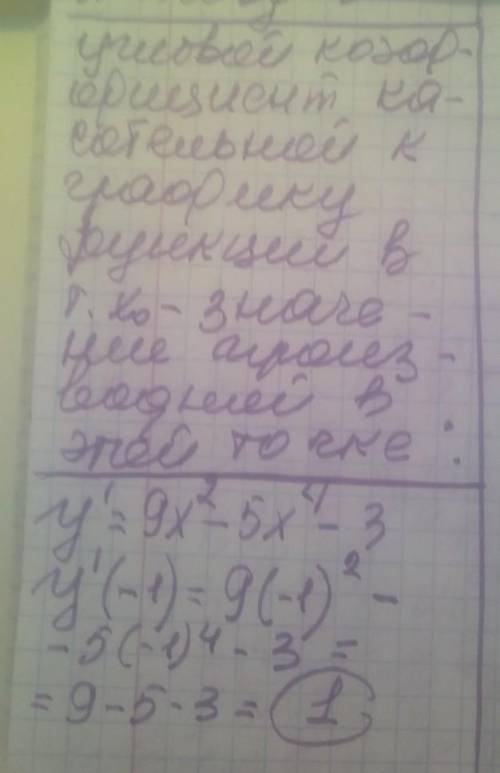 угловой коэф-
фициент ка-
сательной к
графику
функции в
т. x₀ - значе -
ние произ -
водной в
этой точке :
y' = 9x² - 5x⁴ - 3
y'(-1) = 9(-1)² -
- 5(-1)⁴ - 3 =
= 9 - 5 - 3 = 1